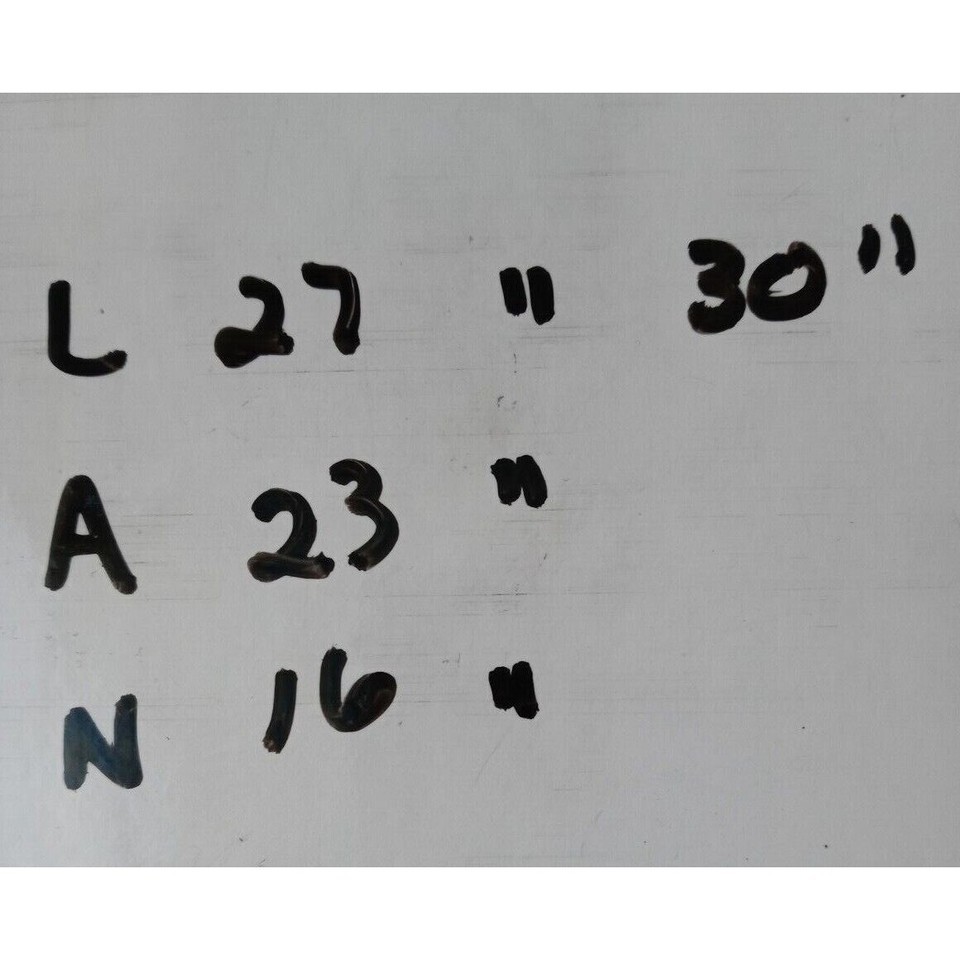 L 27 " 30"
A 23 "
N 16 "